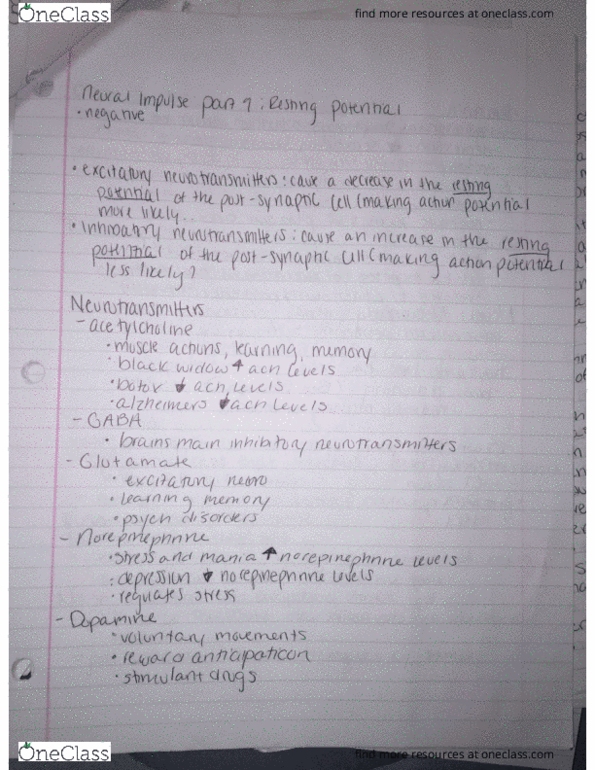 OneClass
find more resources at oneclass.com
Neural Impulse part 1: Resting potential
• negative
• excitatory neurotransmitters: cause a decrease in the resting
potential of the post-synaptic cell (making action potential
more likely..
• Inhibatry neurotransmitters: cause an increase in the resting
potential of the post-synaptic cell (making action potential
less likely)
Neurotransmitters
- acetylcholine
• muscle actions, learning, memory
• black widow ↑ ach levels
• botox ↓ ach levels
• alzheimers ↓ ach levels
- GABA
• brains main inhibitory neurotransmitters
- Glutamate
• excitatory neuro
• learning memory
• psych disorders
- Norepinephrine
• stress and mania ↑ norepinephrine levels
: depression ↓ norepinephrine levels
• regulates stress
- Dopamine
• voluntary movements
• reward anticipation
• stimulant drugs
OneClass
find more resources at oneclass.com